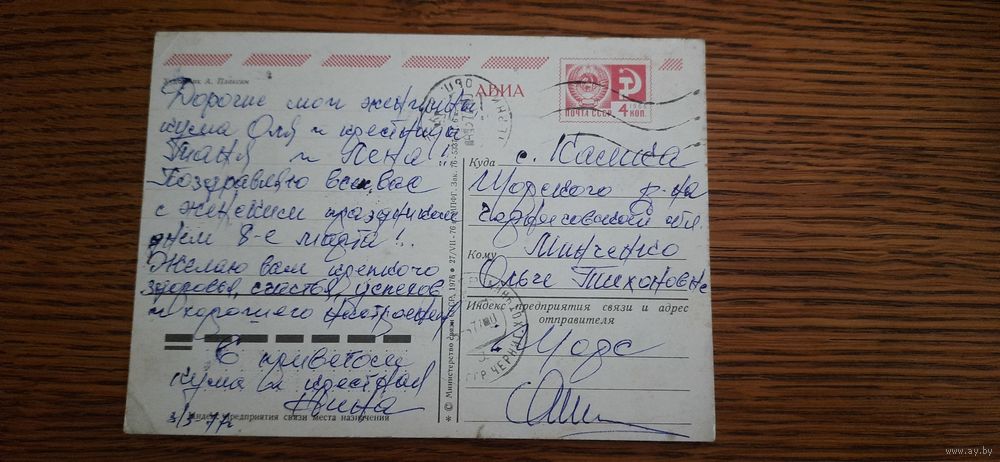 Художник А. Плаксин
АВИА
ПОЧТА СССР 4 КОП.
Дорогие мои женщины
кума Оля и крестницы
Таня и Лена!
Поздравляю всех вас
с женским праздником
днем 8-е марта!
Желаю вам крепкого
здоровья, счастья, успехов
и хорошего настроения
С приветом
кума и крестная
Нина
3/3-77г
Индекс предприятия связи места назначения
* © Министерство связи СССР, 1976 * 27/VII-76
Куда
с.
Щорского р-на
обл.
Кому
Минченко
Ольге Тихоновне
Индекс предприятия связи и адрес
отправителя
г. Щорс
www.ay.by